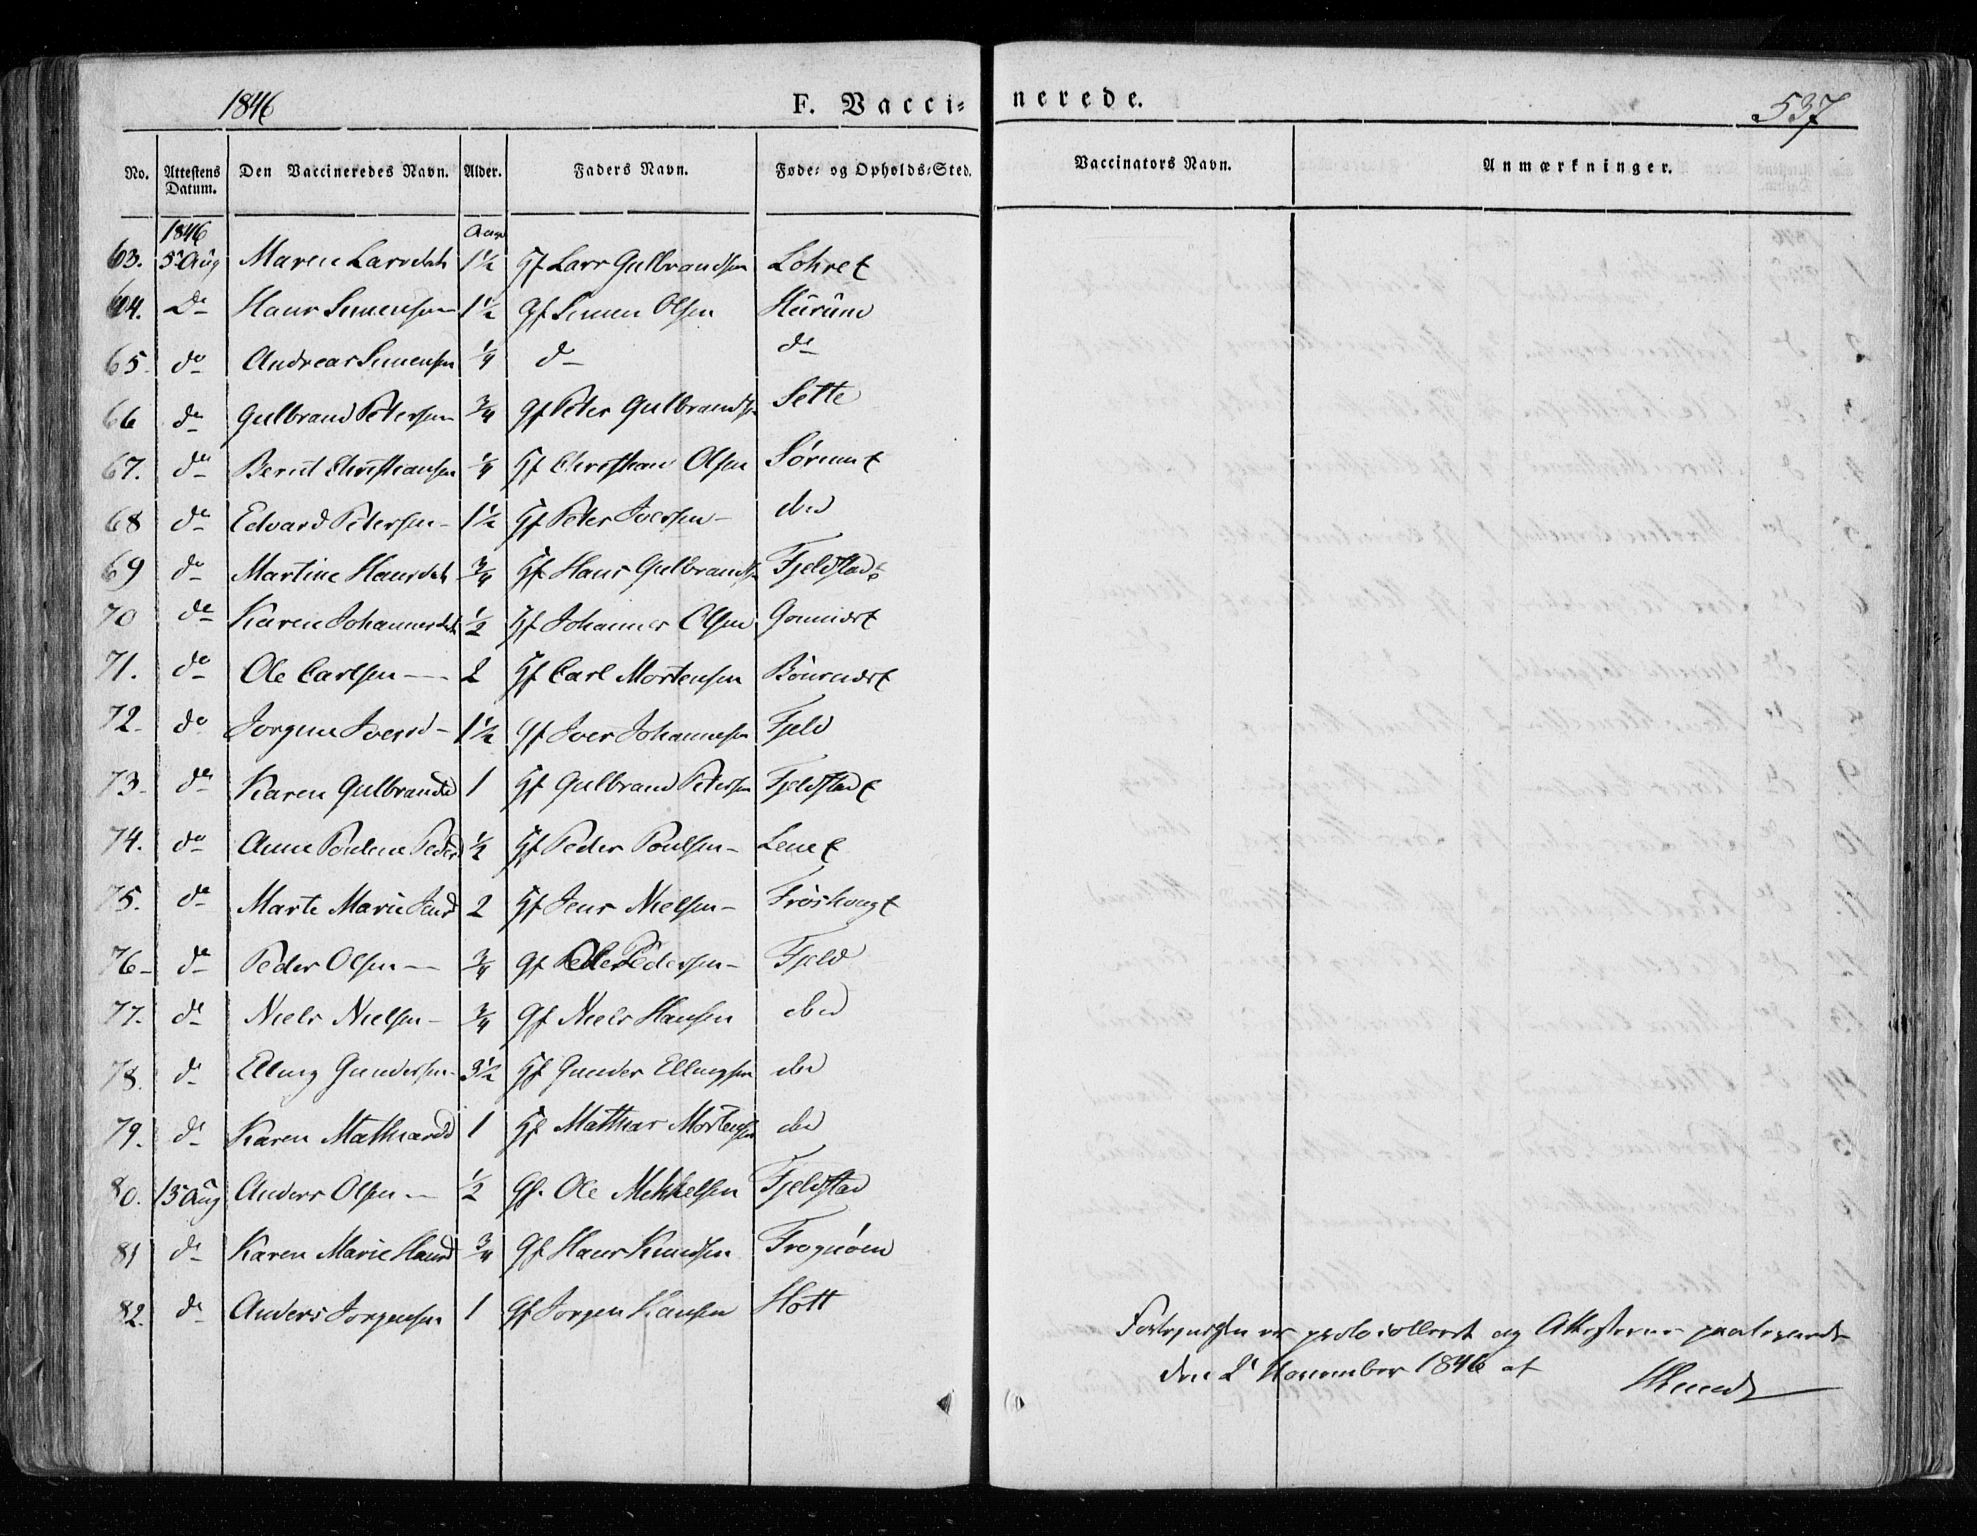 1846 F. Vacci= nerede. 537
No. Attestens Datum. Den Vaccineredes Navn. Alder. Faders Navn. Føde- og Opholds-Sted. Vaccinators Navn. Anmærkninger.
1846 Aar
63. 5 Aug Maren Larsdatt 1½ Gf Lars Gulbrandsen
64. Do Hans Simensen 1½ Gf Simen Olsen Hurum
65. do Andreas Simensen ¼ do do
66 do Gulbrand Petersen ¾ Gf Peter Gulbrands Sette
67. do Bernt Christiansen ¼ Gf Christian Olsen
68 do Edvard Petersen 1½ Gf Peter Iversen ibd
69 do Martine Hansdatt ¾ Gf Hans Gulbrands Fjeldstad
70 do Karen Johannesdatt ½ Gf Johannes Olsen
71. do Ole Carlsen 2 Gf Carl Mortensen
72. do Jorgine Iversd 1½ Gf Iver Johannesen Fjeld
73. do Karen Gulbrandsd 1 Gf Gulbrand Petersen Fjeldstad
74. do Anne Pouline Pedersd ½ Gf Peder Poulsen
75. do Marte Marie Jensd 2 Gf Jens Nielsen
76 do Peder Olsen ¾ Gf Ole Pedersen Fjeld
77. do Niels Nielsen ¾ Gf Niels Hansen ibd
78. do Elling Gundersen 3½ Gf Gunder Ellingsen ibd
79. do Karen Mathiasd 1 Gf Mathias Mortensen ibd
80. 15 Aug Anders Olsen ½ Gf. Ole Mikkelsen Fjeldstad
81 do Karen Marie Hansd ¾ Gf Hans Knudsen Frognøen
82. do Anders Jorgensen 1 Gf Jorgen Hansen Hott
er protocolleret og Attesterne paategnede
den 2 November 1846 af